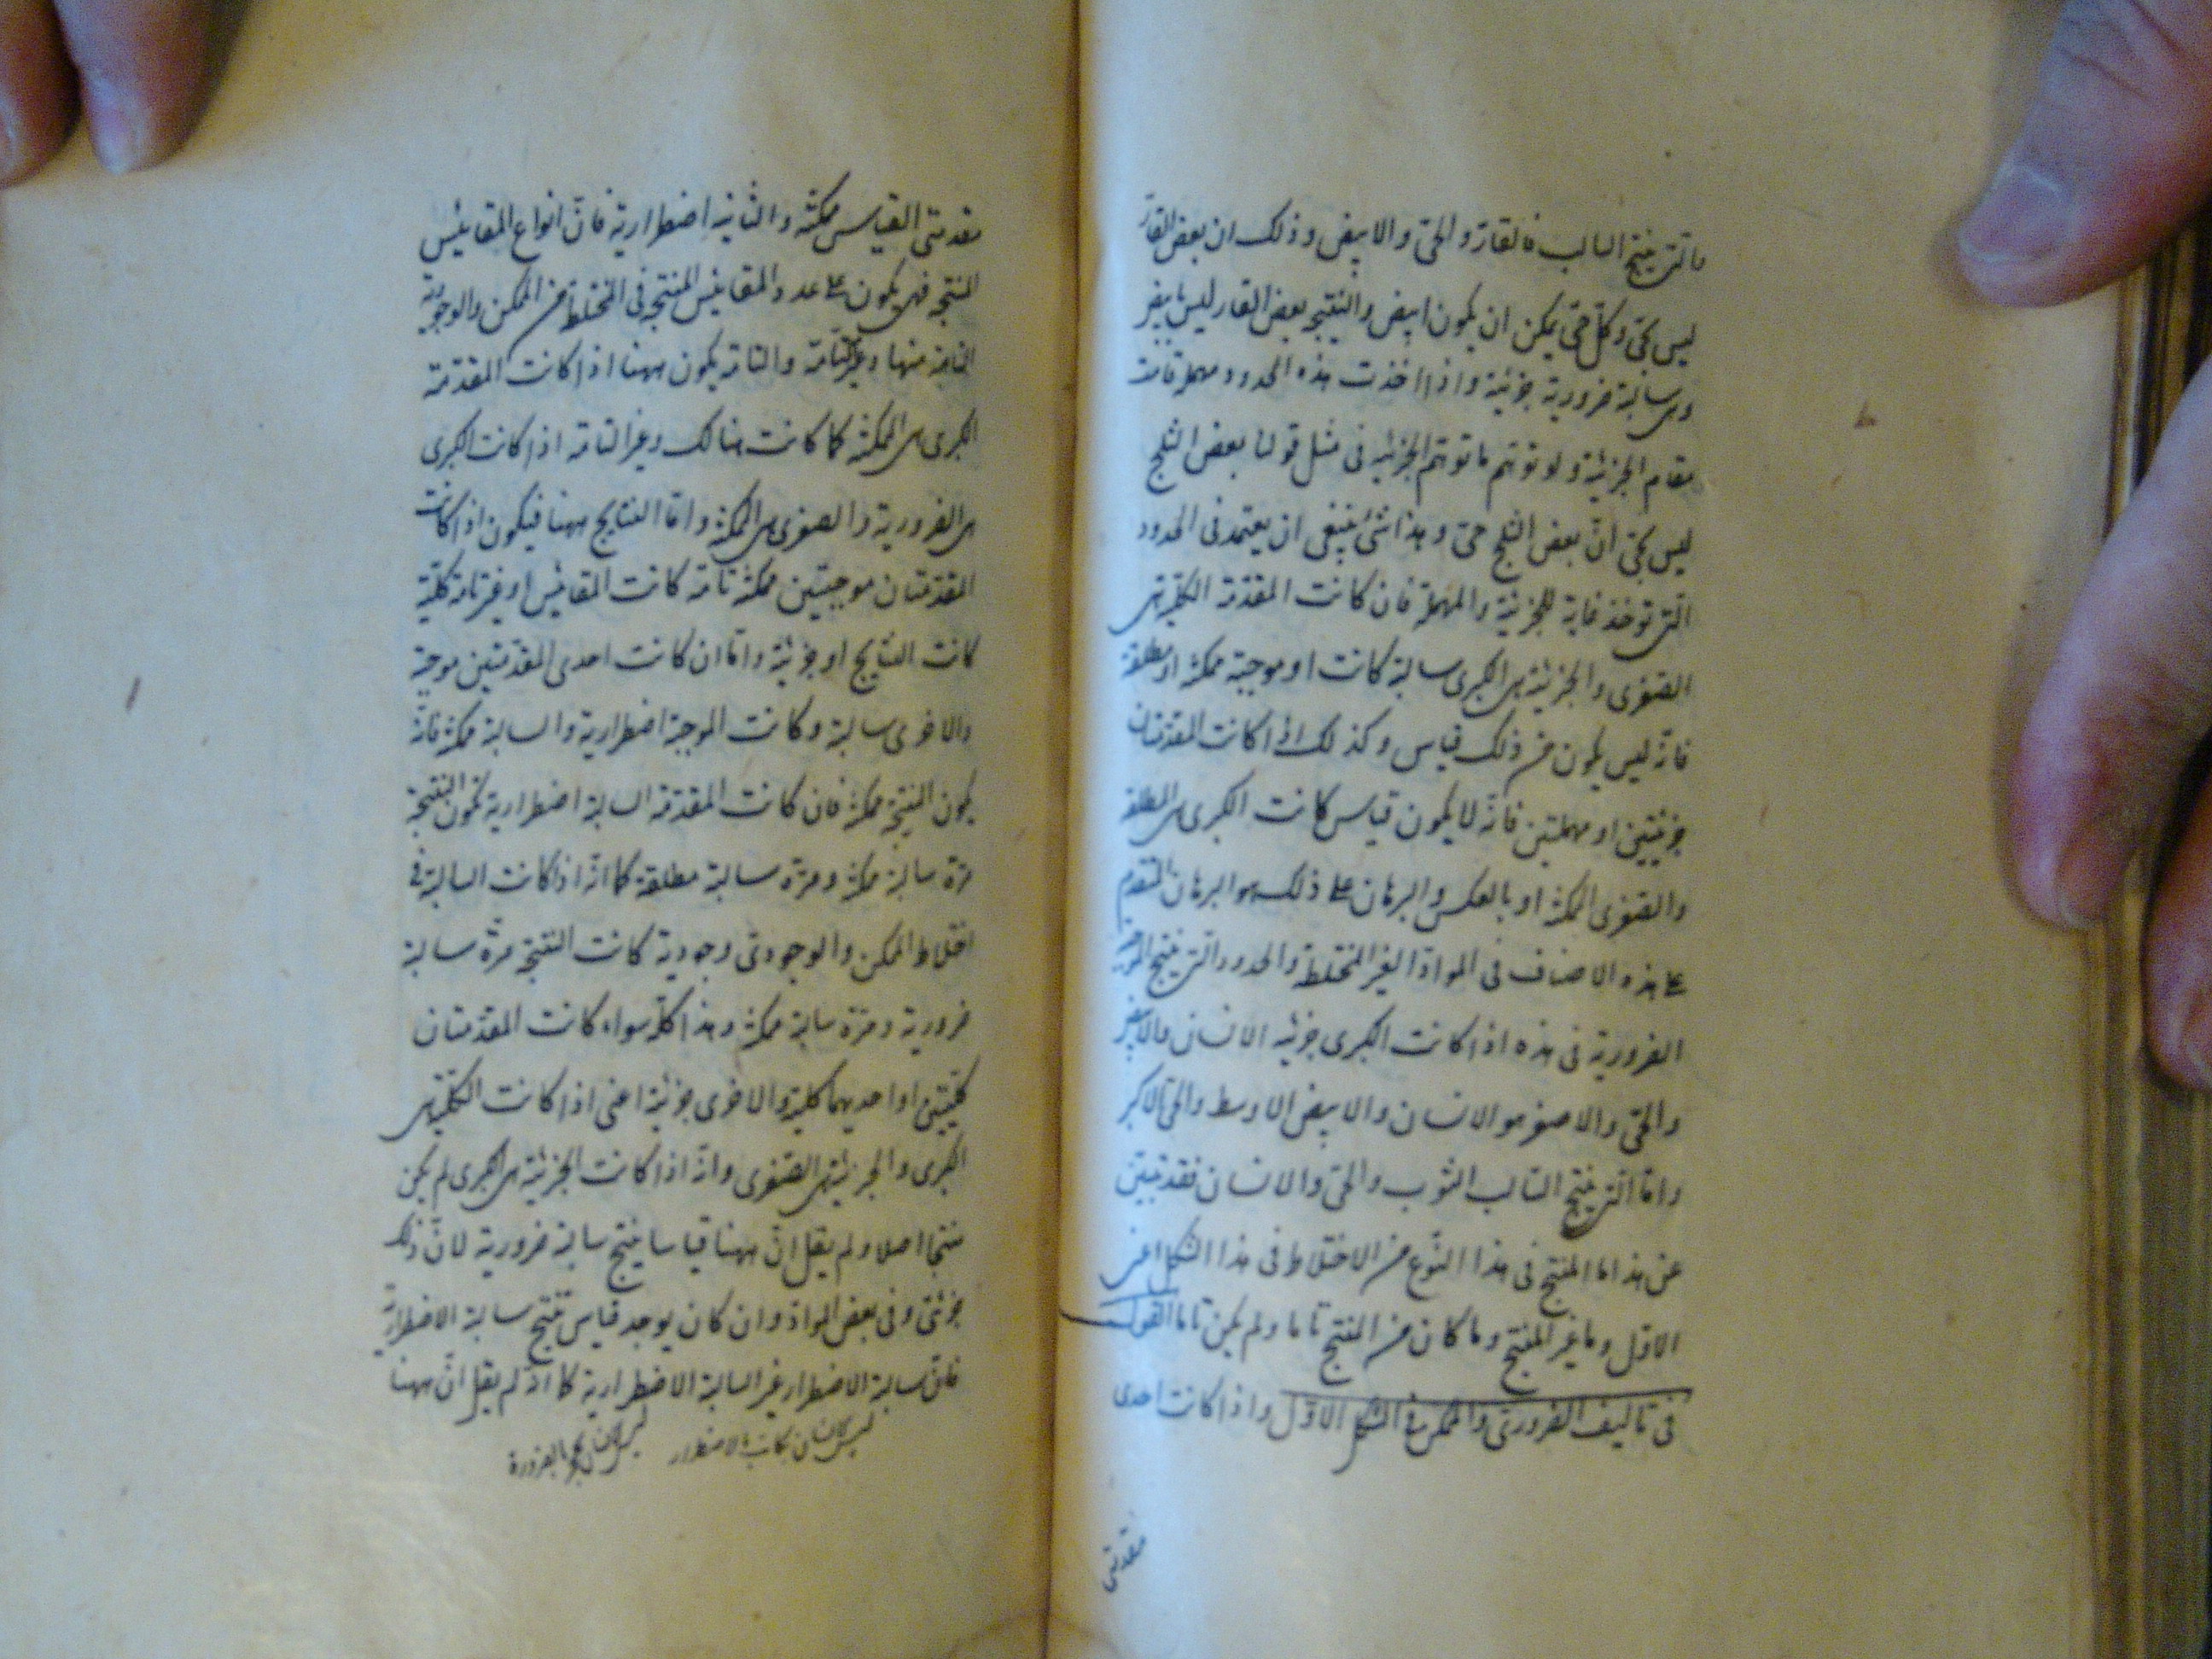 ما التى ينتج السالب فالقار والحى والابيض وذلك ان بعض القار
ليس بحى وكل حى يمكن ان يكون ابيض والنتيجه بعض القار ليس بابيض
وهى سالبة ضرورية جزئية واذا اخذت هذه الحدود مهملة قامت
مقام الجزئية ولو توهم ما توهم الجزئيه فى مثل قولنا بعض الثلج
ليس بحى انّ بعض الثلج حى وهذا شئ ينبغى ان يعتمد فى الحدود
التى توخذ فى الجزئية والمهملة فان كانت المقدمة الكلية هى
الصغرى والجزئية هى الكبرى سالبة كانت او موجبة ممكنة او مطلقة
فانّه ليس يكون من ذلك قياس وكذلك اذا كانت المقدمتان
جزئيتين او مهملتين فانّه لا يكون قياس كانت الكبرى هى المطلقة
والصغرى الممكنة او بالعكس والبرهان على ذلك هو البرهان المتقدم
على هذه الاصناف فى المواد الغير المختلطة والحدود التى ينتج الموجبة
الضرورية فى هذه اذا كانت الكبرى جزئيه الانسان والابيض
والحى والاصغر هو الانسان والابيض الاوسط والحى الاكبر
وامّا التى ينتج السالب الثوب والحى والانسان فقد تبيّن
من هذا ما المنتج فى هذا النّوع من الاختلاط فى هذا الشكل اعنى
الاول وما غير المنتج وما كان من المنتج تاما ولم يكن تاما القول
فى تاليف الضرورى والممكن فى الشكل الاوّل واذا كانت احدى
مقدمتى
مقدمتى القياس ممكنة والثانيه اضطرارية فانّ انواع المقائيس
المنتجه فهى يكون على عدد المقائيس المنتجه فى المختلطة من الممكن والوجودية
التامة منها وغير التامة والتامة يكون ههنا اذا كانت المقدمة
الكبرى هى الممكنة كما كانت هنالك وغير التامة اذا كانت الكبرى
هى الضرورية والصغرى هى الممكنة وامّا النتايج ههنا فيكون اذا كانت
المقدمتان موجبتين ممكنة تامة كانت المقائيس او غير تامة كلّية
كانت النتايج او جزئية وامّا ان كانت احدى المقدمتين موجبة
والاخرى سالبة وكانت الموجبة اضطرارية والسالبة ممكنة فانّه
يكون النتيجة ممكنة فان كانت المقدمة السالبة اضطرارية تكون النتيجة
مرّة سالبة ممكنة ومرّة سالبة مطلقة كما انّه اذا كانت السالبة فى
اختلاط الممكن والوجودى وجودية كانت النتيجة مرّة سالبة
ضرورية ومرّة سالبة ممكنة وهذا كلّه سواء كانت المقدمتان
كلّيتين او احديهما كلية والاخرى جزئية اعنى اذا كانت الكلّية هى
الكبرى والجزئية هى الصغرى وانّه اذا كانت الجزئية هى الكبرى لم يكن
منتجا اصلا ولم يقل انّ ههنا قياسا ينتج سالبة ضرورية لانّ ذلك
جزئى وفى بعض المواد وان كان يوجد قياس تنتج سالبة الاضطرارية
فانّ سالبة الاضطرار غير السالبة الاضطرارية كما انّه لم يقل انّ ههنا
ليس كل انسان كاتب بالاضطرار